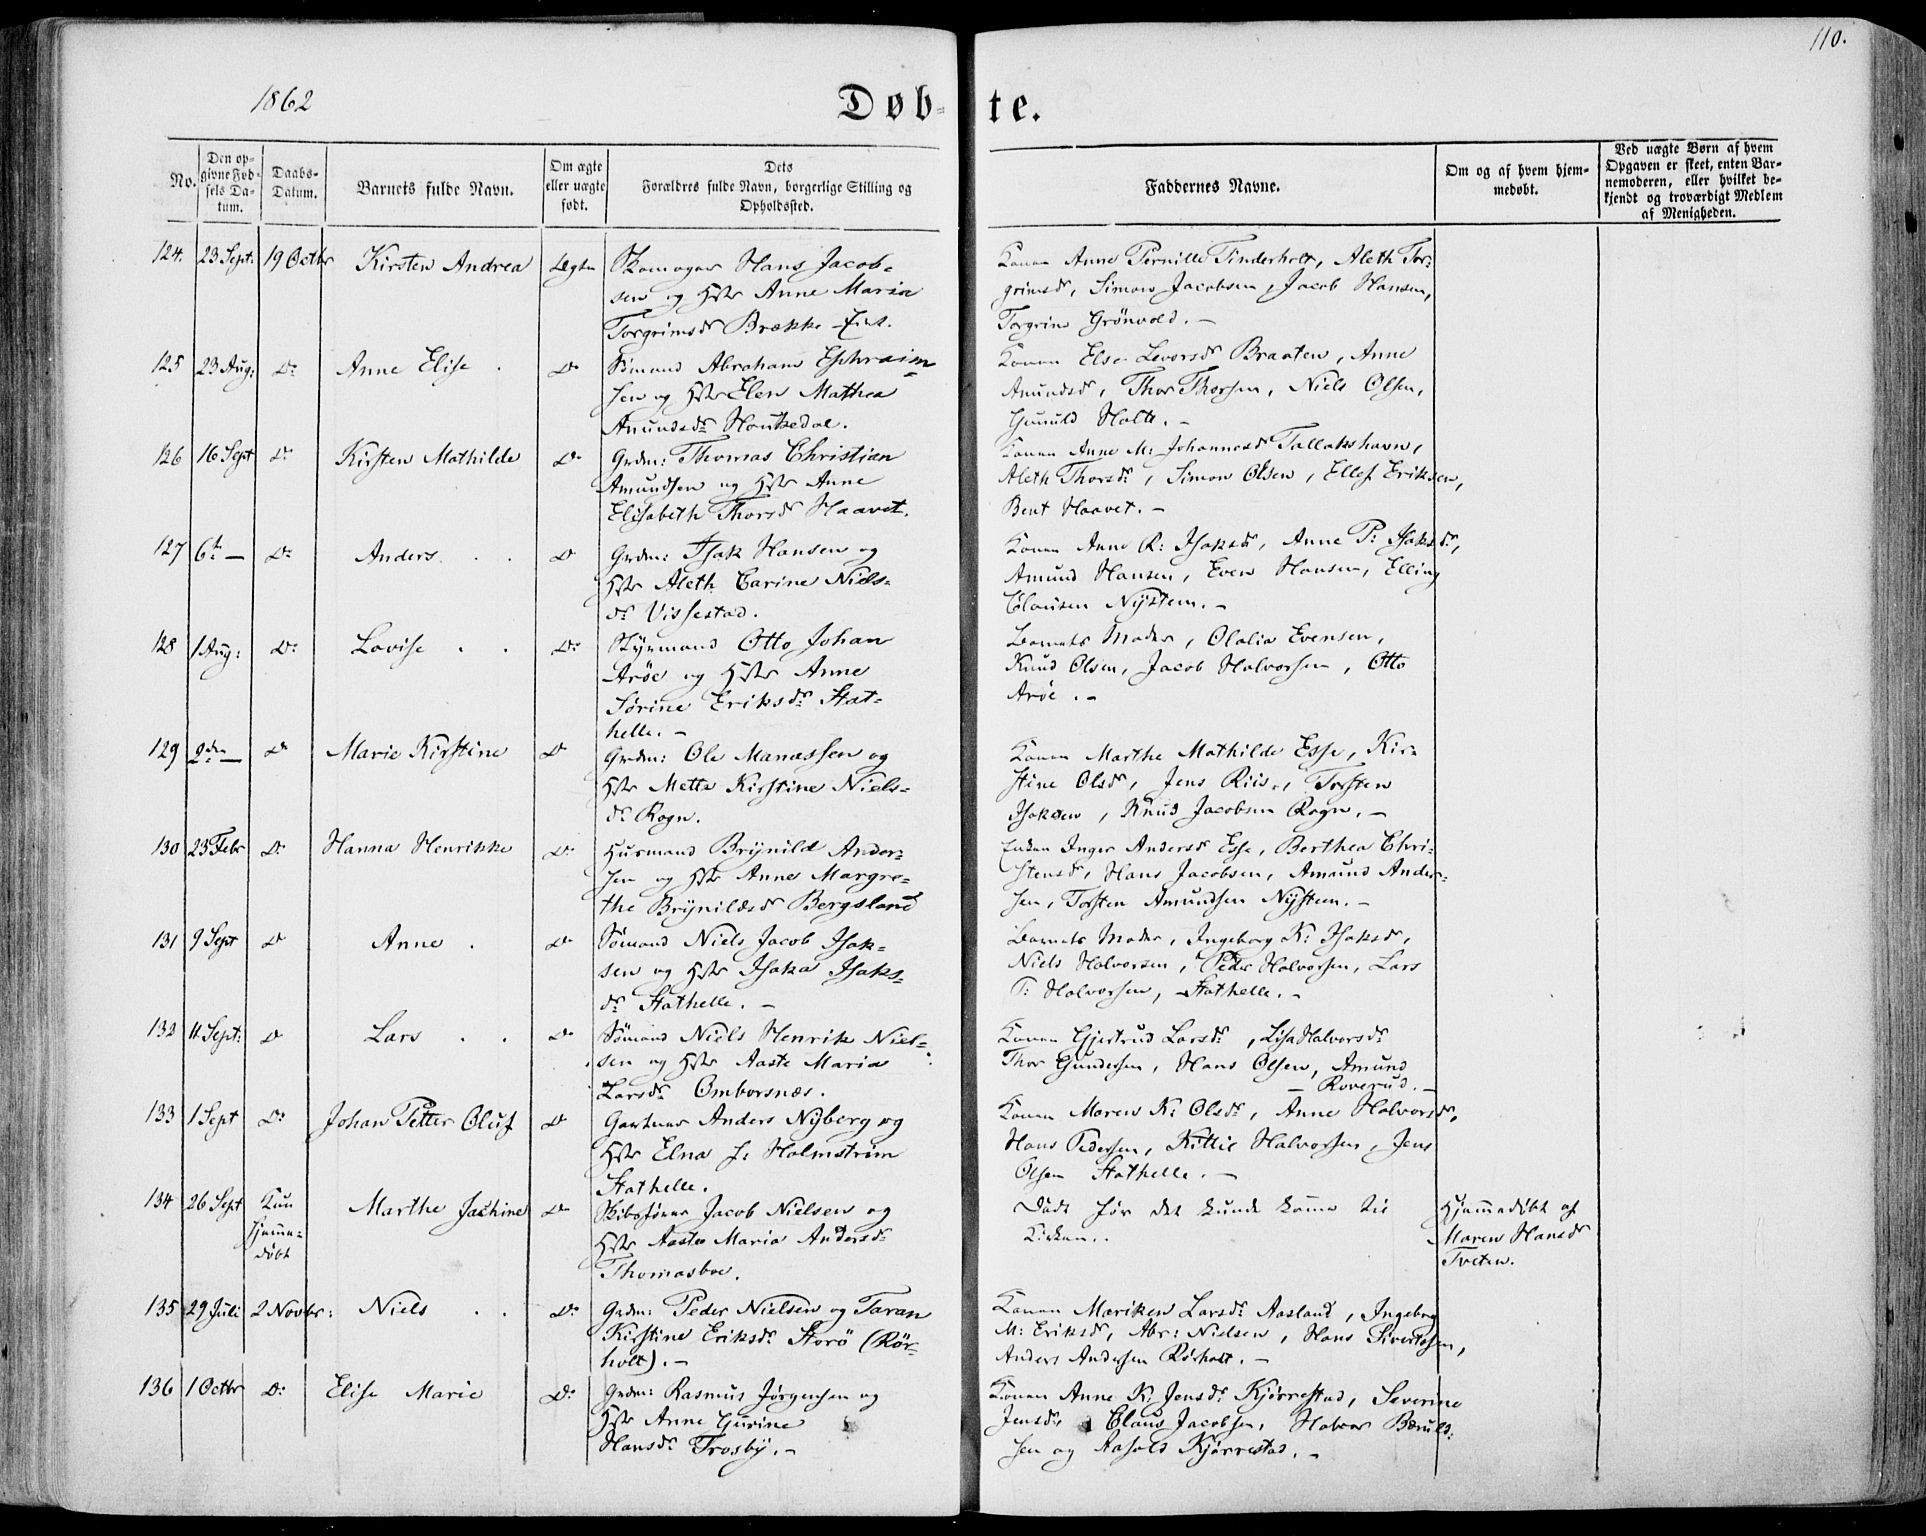 110.
1862
Døb-
te.
No.
Den op-
givne Fød-
sels Da-
tum.
Daabs-
Datum.
Barnets fulde Navn.
Om ægte
eller uægte
født.
Dets
Forældres fulde Navn, borgerlige Stilling og
Opholdssted.
Faddernes Navne.
Om og af hvem hjem-
medøbt.
Ved uægte Børn af hvem
Opgaven er skeet, enten Bar-
nemoderen, eller hvilket be-
kjendt og troværdigt Medlem
af Menigheden.
124. 23 Sept: 19 Octbr Kirsten Andrea Ægte
Skomager Hans Jacob-
sen og Hstr Anne Maria
Torgrimsdr Brække
Konen Anne Pernille Tinderholt, Aleth Tor-
grimsd, Simon Jacobsen, Jacob Hansen,
Torgrim Grönvold. -
125 23 Aug: Do Anne Elise Do
Sömand Abraham Ephraim-
sen og Hstr Elen Mathea
Amundsdr
Konen Else Levorsdr Braaten, Anne
Amundsd, Thor Thorsen, Niels Olsen,
Gunuld Holte. -
126 16 Sept Do Kirsten Mathilde Do
Grdm: Thomas Christian
Amundsen og Hstr Anne
Elisabeth Thorsdr Haavet.
Konen Anne M: Johannesd Tallakshavn,
Aleth Thorsdr, Simon Olsen, Ellef Eriksen,
Bent Haavet. -
127 6te - Do Anders. Do
Grdm: Isak Hansen og
Hstr Aleth Carine Niels-
dr Vissestad.
Konen Anne R: Isaksdr, Anne P: Isaksdr,
Amund Hansen, Even Hansen, Elling
Clausen Nystein. -
128 1 Aug: Do Lovise Do
Styrmand Otto Johan
Aröe og Hstr Anne
Sörine Eriksdr Stat-
helle. -
Barnets Moder, Olalia Evensen,
Knud Olsen, Jacob Halvorsen, Otto
Aröe. -
129 2den - Do Marie Kirstine Do
Grdm: Ole Manassen og
Hstr Mette Kirstine Niels-
dr Rogn.
Konen Marthe Mathilde Esse, Kir-
stine Olsdr, Jens Riis, Torsten
Isaksen, Knud Jacobsen Rogn. -
130 23 Febr Do Hanna Henrikke Do
Husmand Brynild Ander-
sen og Hstr Anne Margre-
the Brynildsdr Bergsland
Enken Inger Andersd Esse, Berthea Chri-
stensd, Hans Jacobsen, Amund Ander-
sen, Torsten Amundsen Nystein. -
131 9 Sept Do Anne. Do
Sömand Niels Jacob Isak-
sen og Hstr Isaka Isaks-
dr Stathelle. -
Barnets Moder, Ingeborg K: Isaksd,
Niels Halvorsen, Peder Halvorsen, Lars
T: Halvorsen, Stathelle. -
132 11 Sept: Do Lars Do
Sömand Niels Henrik Niel-
sen og Hstr Aaste Maria
Larsdr Omborsnæs.
Konen Gjertrud Larsdr, Lisa Halvorsdr
Thor Gundersen, Hans Olsen, Amund
- Roverud. -
133 1 Sept Do Johan Petter Oluf Do
Gartner Anders Nyberg og
Hstr Elna J: Holmström
Stathelle.
Konen Maren K: Olsdr, Anne Halvorsdr,
Hans Pedersen, Kittil Halvorsen, Jens
Olsen Stathelle. -
134 26 Sept Kun
hjemme-
döbt
Marthe Jachine Do
Skibsförer Jacob Nielsen og
Hstr Aaste Maria Andersdr
Thomasboe.
Döde för det kunde komme til
Kirken..
Hjemmedöbt af
Maren Hansdr
Tveten.
135 29 Juli 2 Novbr: Niels Do
Grdm: Peder Nielsen og Taran
Kirstine Eriksdr Storö (Rör-
holt). -
Konen Mariken Larsdr Aasland, Ingeborg
M: Eriksdr, Abr: Nielsen, Hans Sivertsen,
Anders Andersen Rörholt. -
136 1 Octbr Do Elise Marie Do
Grdm: Rasmus Jörgensen og
Hstr Anne Gurine
Hansdr Trosby. -
Konen Anne K: Jensdr Kjörrestad, Severine
Jensdr, Claus Jacobsen, Halvor
sen og Kjörrestad. -